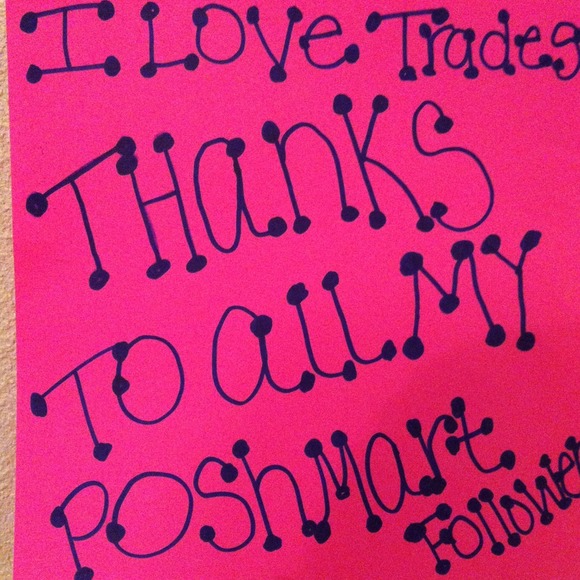 I LOVe Trades
THaNKS
TO aLL MY
POShMart
Follower